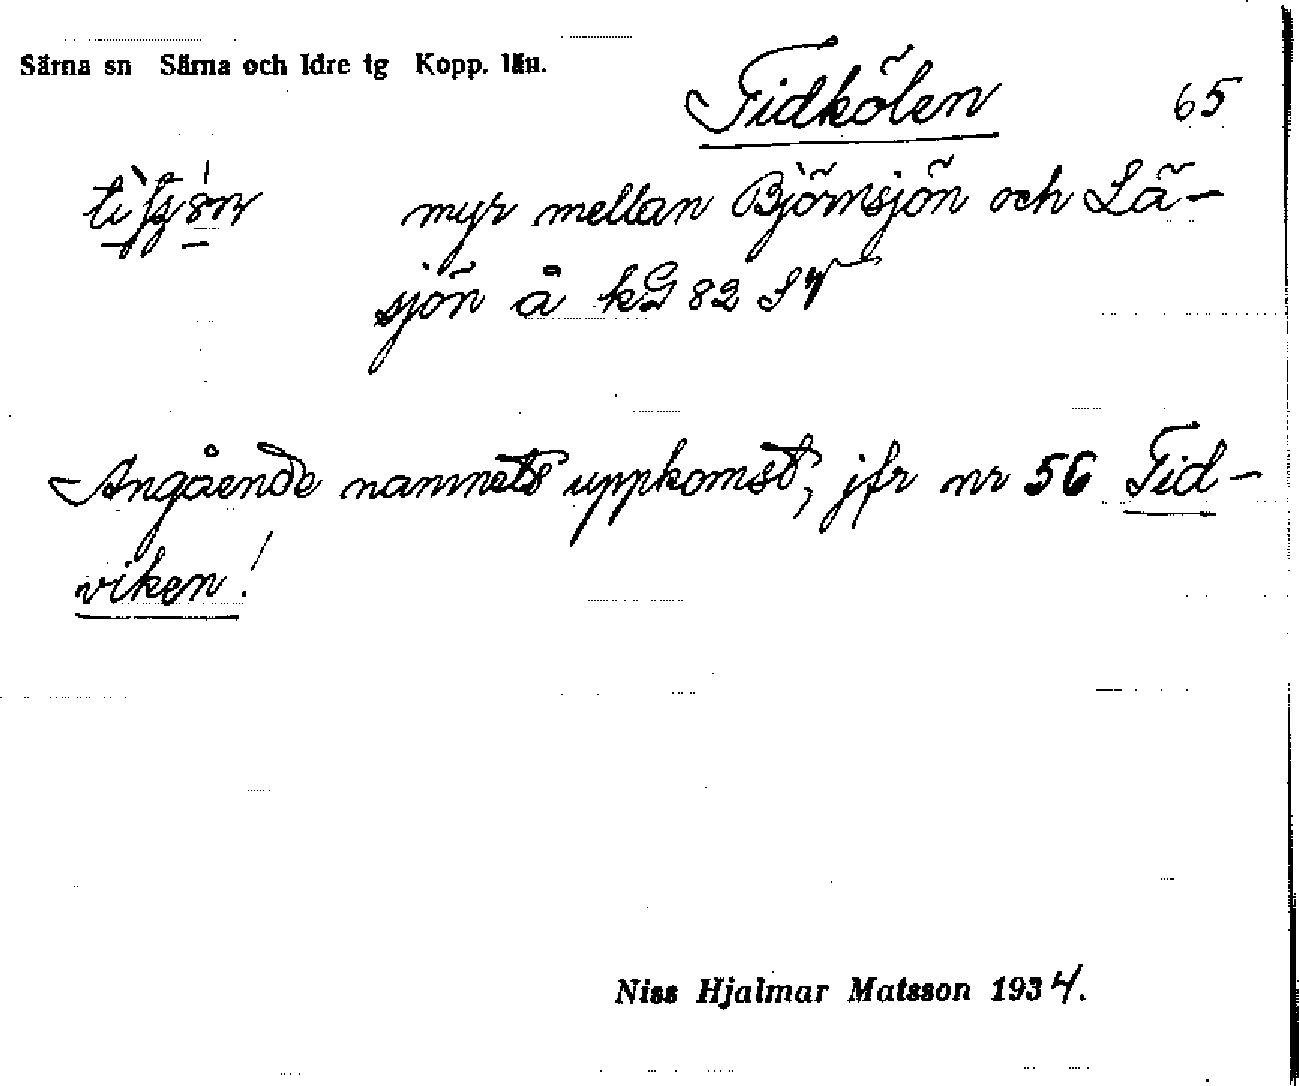 Särna sn Särna och Idre tg Kopp. län.
Tidkölen 65
myr mellan Björnsjön och Lä-
sjön å kG 82 SV
Angående namnets uppkomst, jfr nr 56 Tid-
viken!
Niss Hjalmar Matsson 1934.